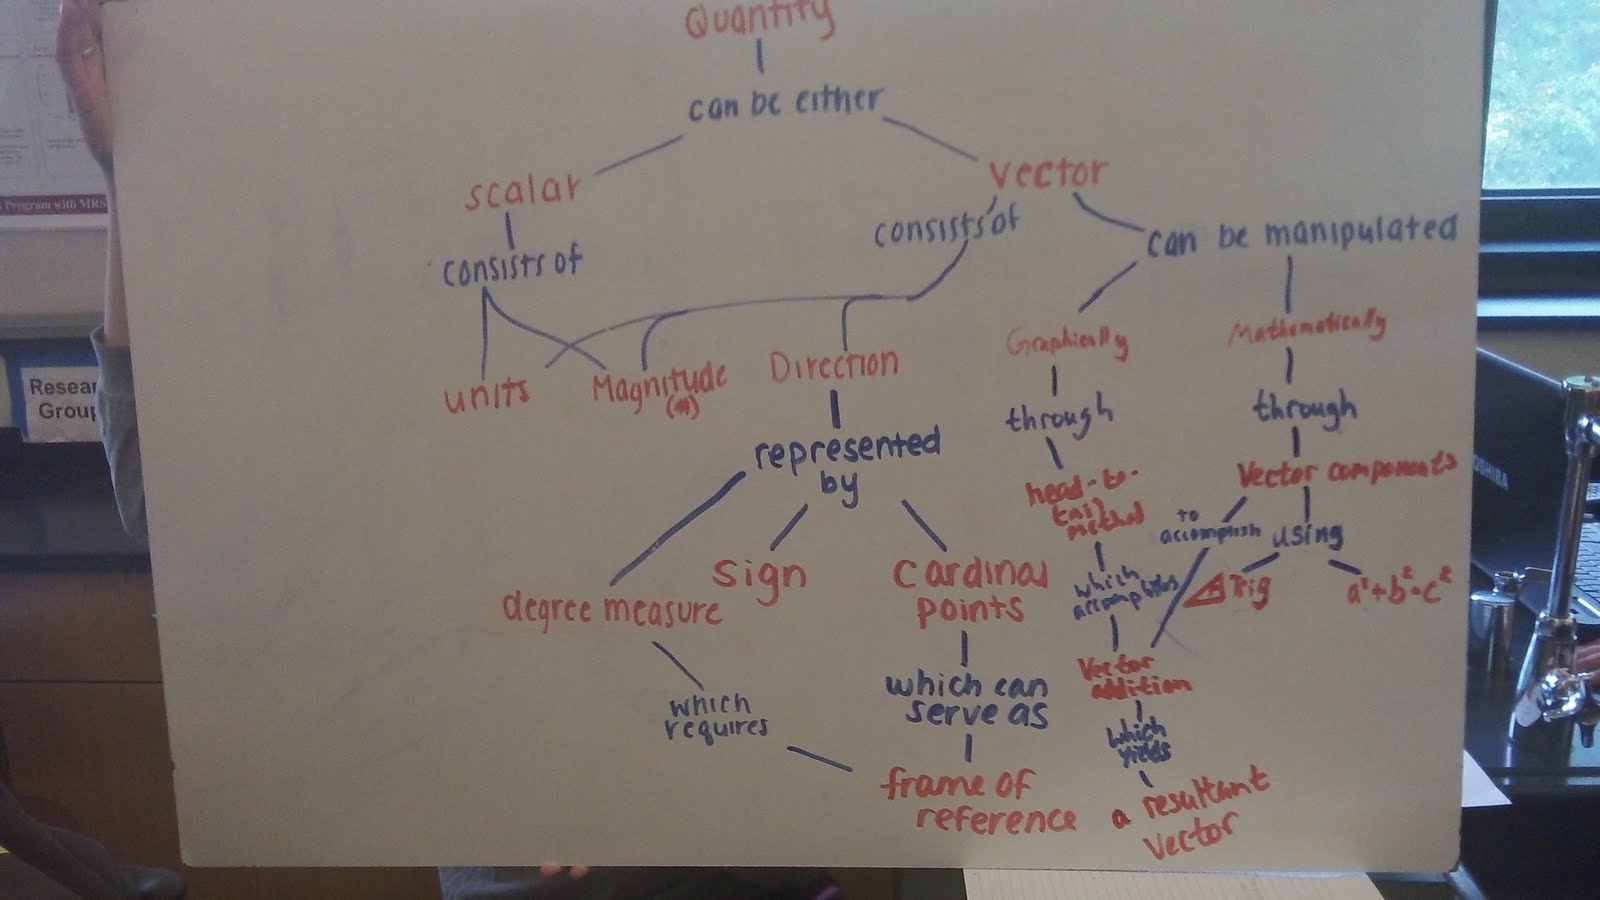 Quantity
can be either
scalar
vector
consists of
consists of
can be manipulated
units
Magnitude
(#)
Direction
Graphically
Mathematically
represented
by
through
through
degree measure
sign
cardinal
points
head-to-
tail
method
Vector components
to
accomplish
using
Trig
a²+b²=c²
which
accomplishes
Vector
addition
which
requires
which can
serve as
which
yields
frame of
reference
a resultant
vector
Program with MRS
Resear
Group
OSHIBA